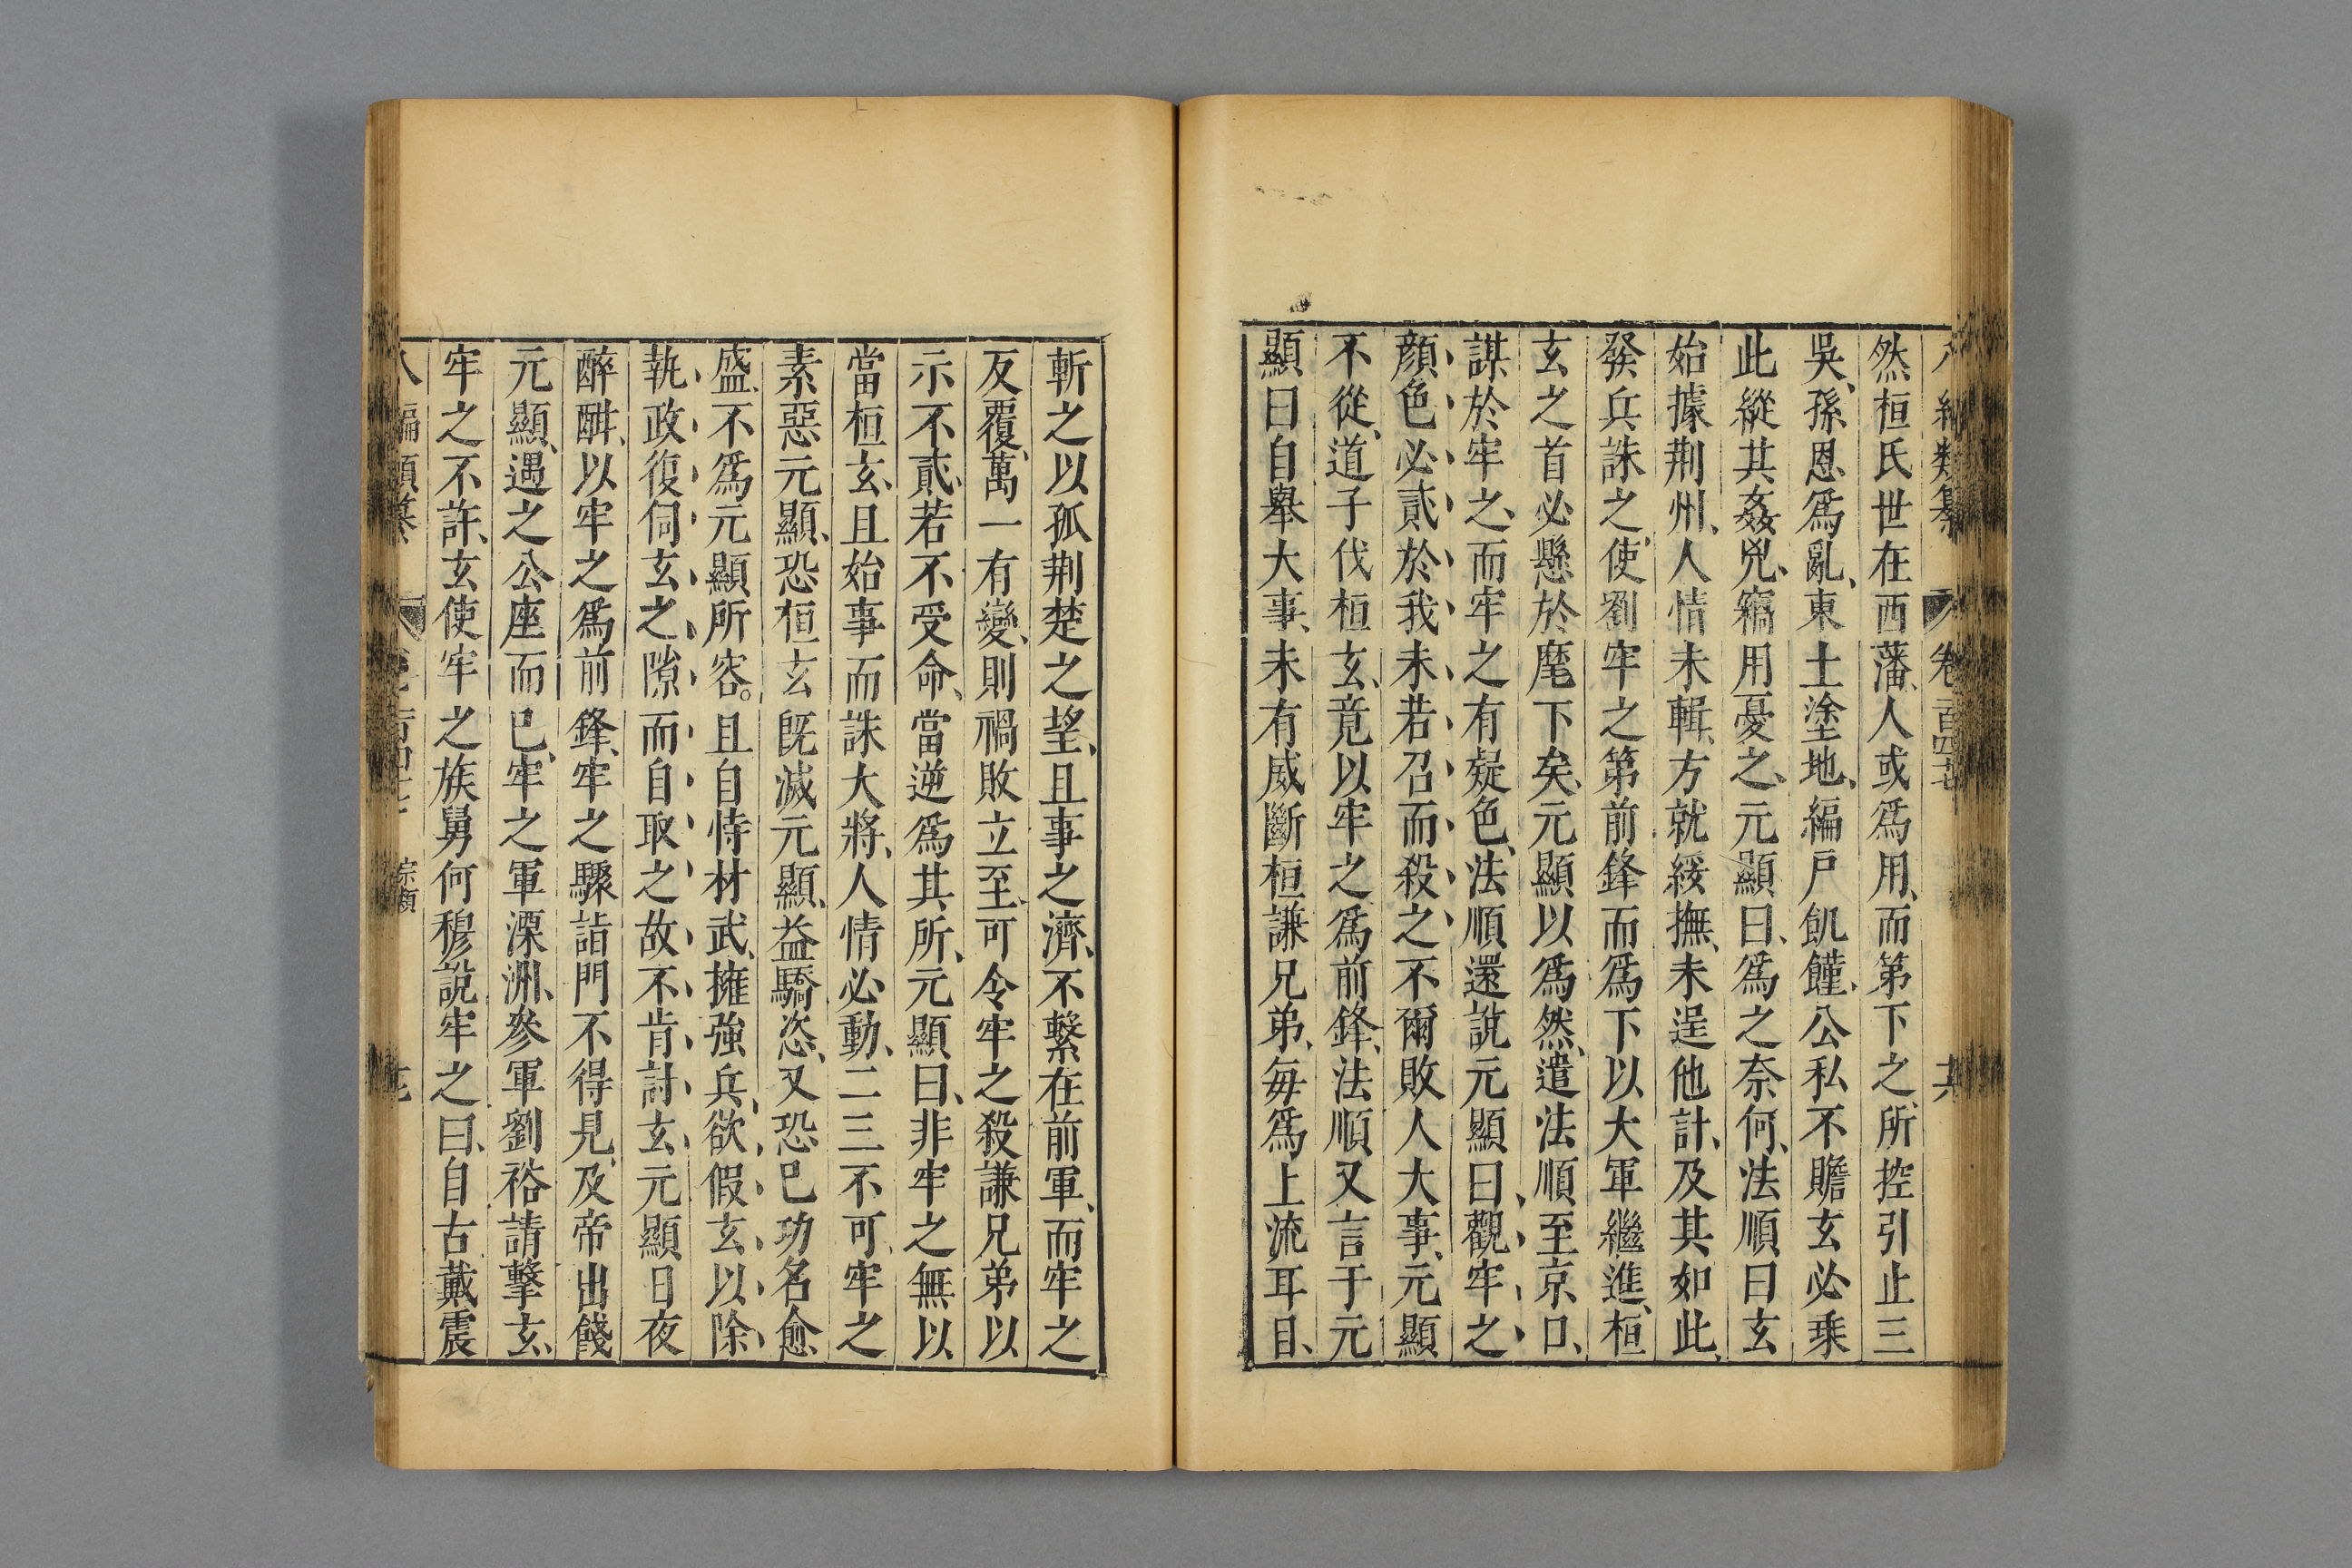 八編類纂 卷一百四七 共
然桓氏世在西藩、人或爲用、而第下之、所控引止三
吳、孫恩爲亂、東土塗地、編戸飢饉、公私不贍玄必乗
此縱其姦兇、竊用憂之、元顯曰、爲之奈何、法順曰玄
始據荆州、人情未輯、方就綏撫、未逞他計、及其如此、
發兵誅之、使劉牢之第前鋒而爲下以大軍繼進、桓
玄之首必懸於麾下矣、元顯以爲然、遣法順至京口、
謀於牢之、而牢之有疑色、法順還說元顯曰、觀牢之
顔色必貳於我未若召而殺之不爾敗人大事、元顯
不從、道子伐桓玄、竟以牢之爲前鋒、法順又言于元
顯曰自舉大事、未有威斷桓謙兄弟、每爲上流耳目、
斬之以孤荆楚之望、且事之濟、不繫在前軍、而牢之
反覆、萬一有變、則禍敗立至、可令牢之殺謙兄弟以
示不貳、若不受命、當逆爲其所、元顯曰、非牢之無以
當桓玄、且始事而誅大將、人情必動、二三不可、牢之
素惡元顯、恐桓玄旣滅元顯、益驕恣、又恐已功名愈
盛、不爲元顯所容。且自恃材武、擁強兵、欲假玄以除
執政復伺玄之隙而自取之故不肯討玄、元顯日夜
醉酣、以牢之爲前鋒、牢之驟詣門不得見、及帝出餞
元顯、遇之公座而已、牢之軍溧洲、參軍劉裕請擊玄、
牢之不許、玄使牢之族舅何穆說牢之曰、自古戴震
八編類纂 卷一百四十七 宗類